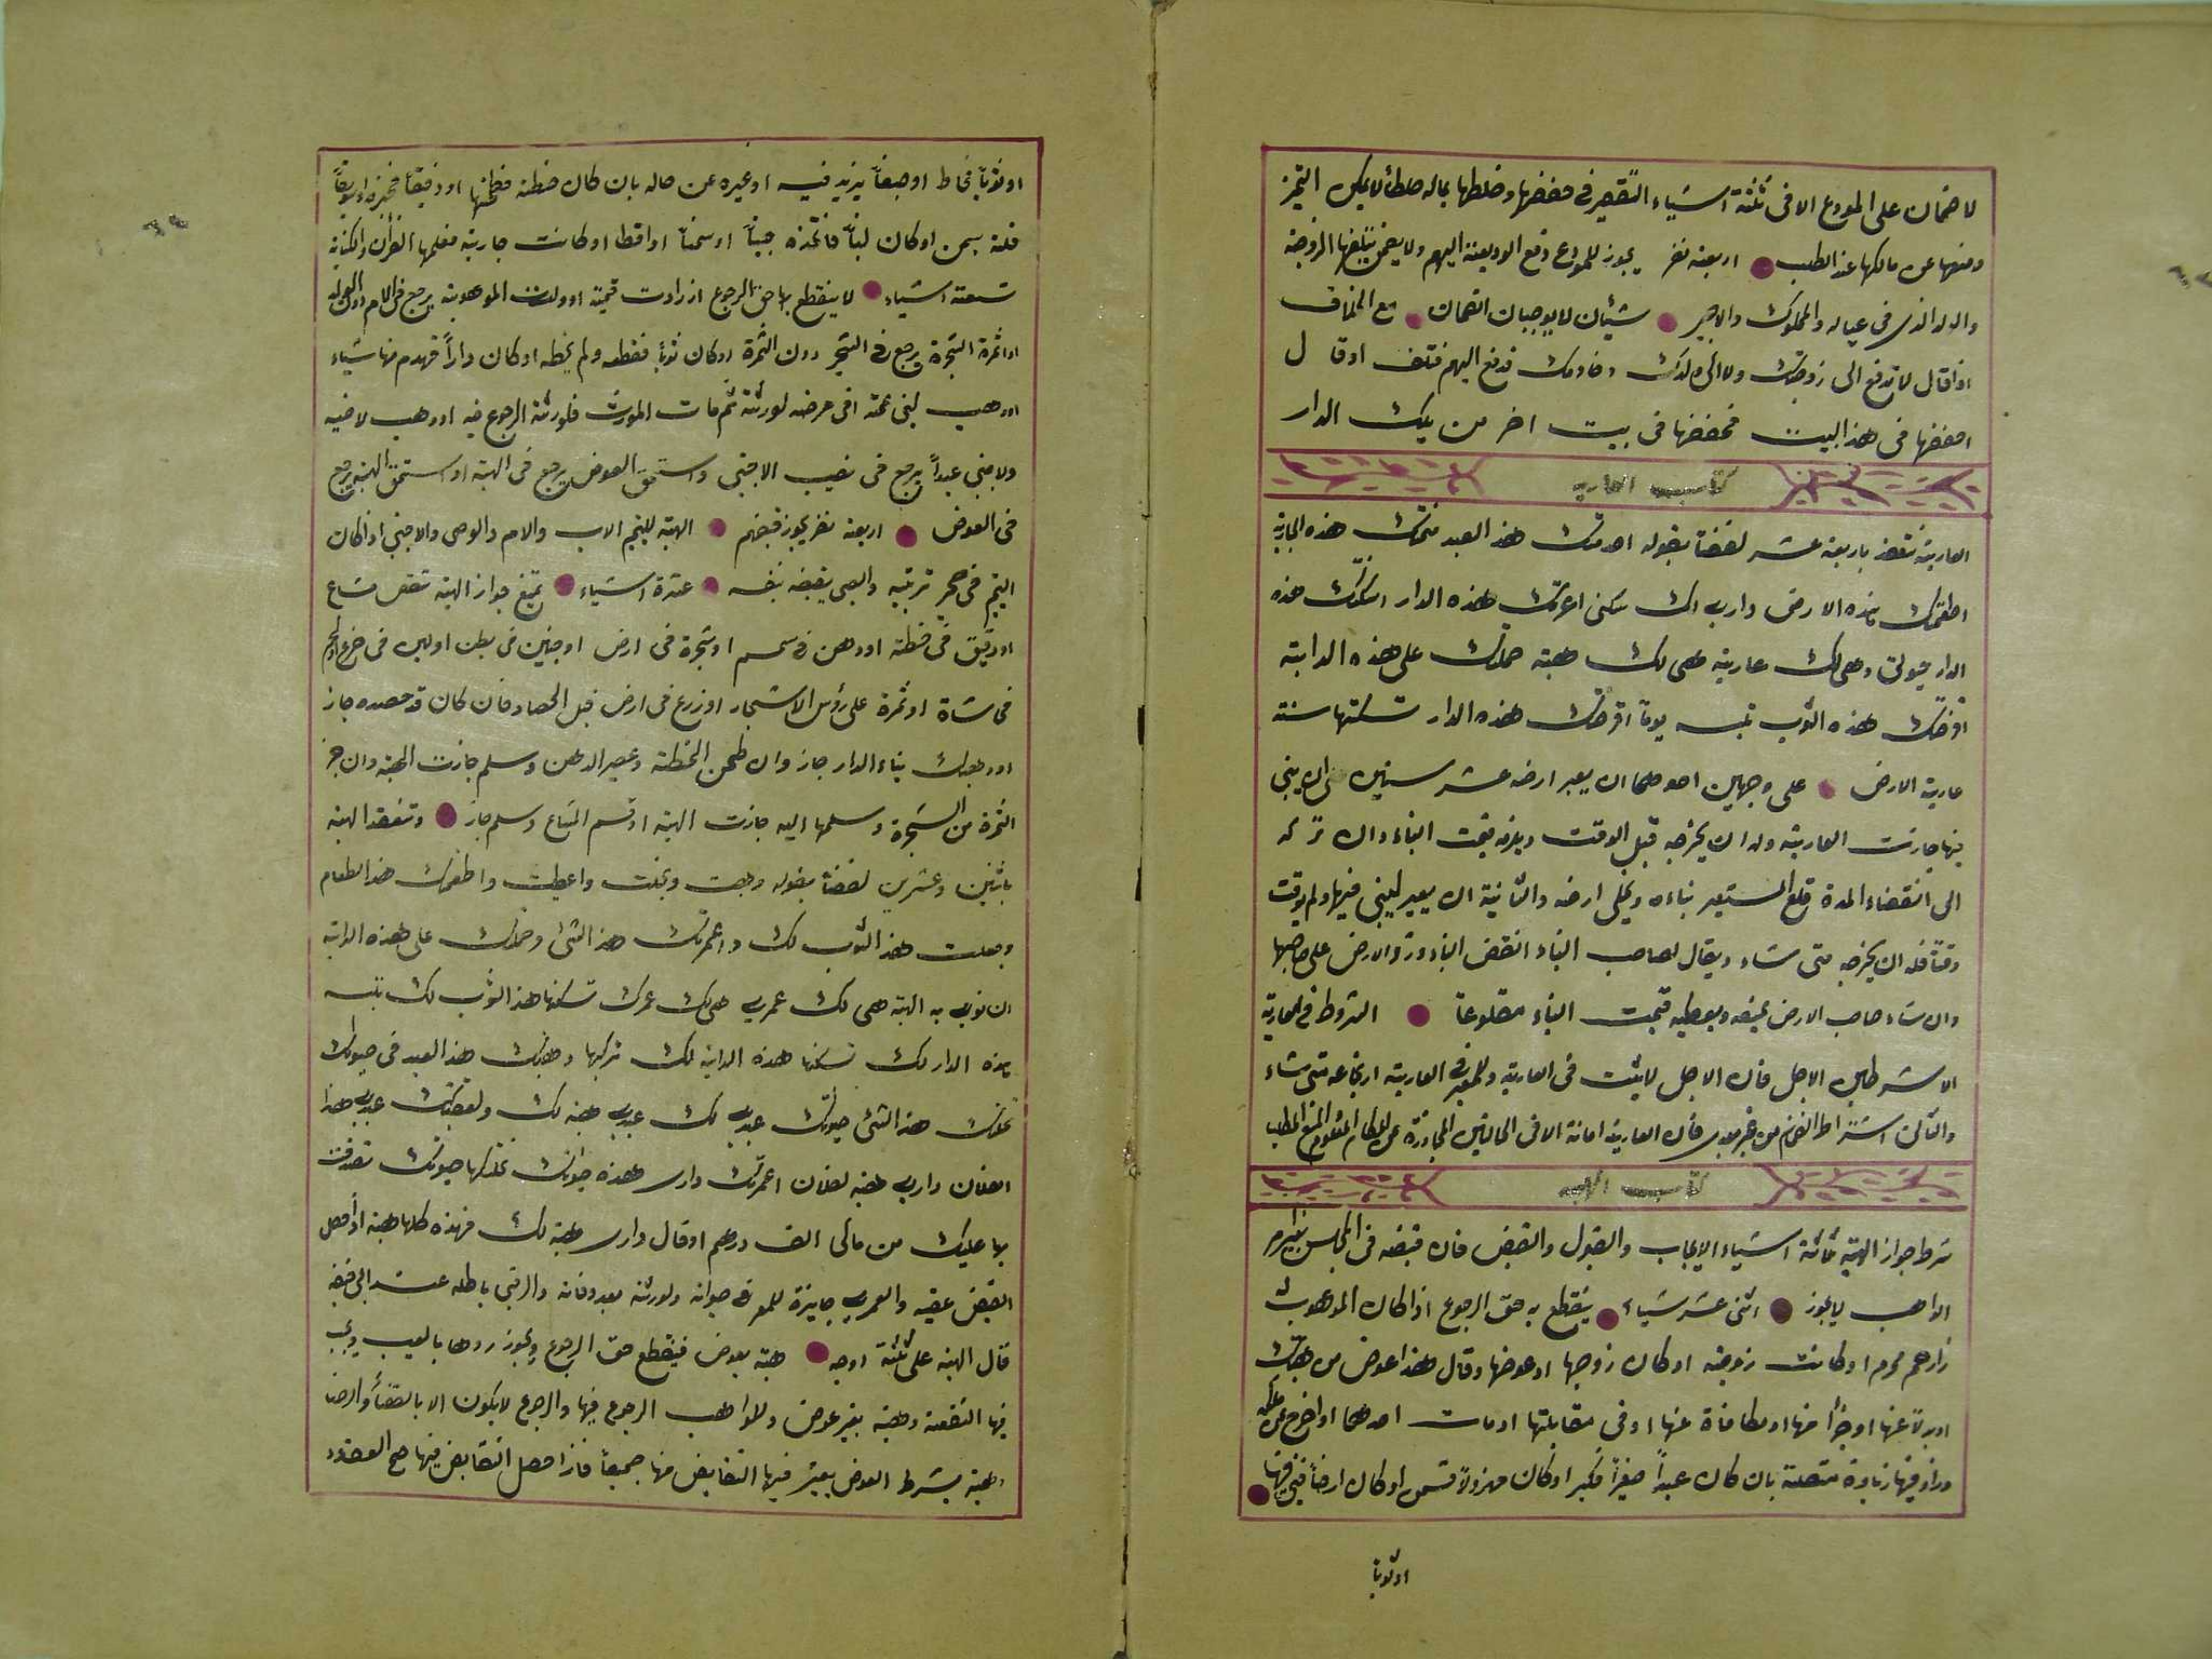 لا ضمان على المودع الا فى ثلثة اشياء التقصير فى حفضها وخلطها بماله خلطاً لا يمكن التميز
ومنعها عن مالكها عند الطلب اربعة نفر يجوز للمودع دفع الوديعة اليهم ولا يضمن بتلفها الزوجة
والولد الذى فى عياله والمملوك والاجير شيئان لا يوجبان الضمان مع الخلاف
اذا قال لا تدفع الى زوجتك ولا الى ولدك وخادمك فدفع اليهم فتلف او قال
احفضها فى هذا البيت فحفضها فى بيت اخر من تلك الدار
كتاب العاريه
العارية تنعقد باربعة عشر لفضاً بقوله اخدمتك هذ العبد منحتك هذه الجارية
اطعمتك هذه الارض دارى لك سكنى اعرتك هذه الدار اسكنتك هذه
الدار حيوتى وهى لك عارية هى لك هبة حملتك على هذه الدابة
اقرضتك هذه الثوب تلبسه يوماً اقرضتك هذه الدار تسكنها سنة
عارية الارض على وجهين احدهما ان يعير ارضه عشر سنين على ان يبنى
فيها جازت العارية وله ان يخرجه قبل الوقت ويغرمه قيمت البناء وان تركه
الى انقضاء المدة قلع المستعير بناءه ويخلى ارضه والثانية ان يعير ليبنى فيها ولم يوقت
وقتاً فله ان يخرجه متى شاء ويقال لصاحب البناء انقض البناء ورد الارض على صاحبها
وان شاء صاحب الارض يمنعه ويعطيه قيمت البناء مقلوعاً الشروط فى العارية
الا شرطين الاجل فان الاجل لا يثبت فى العارية وللمعير فى العارية ارتجاعه متى شاء
والثانى اشتراط الضمان من غير تعدى فان العارية امانة الا فى الحالتين المجاوزة عن المطلب
كتاب الهبه
شرط جواز الهبة ثلثة اشياء الايجاب والقبول والقبض فان قبضه فى المجلس بغير امر
الواهب لا يجوز اثنى عشر شياء ينقطع به حق الرجوع اذا كان الموهوب له
ذارحم محرم او كانت زوجته او كان زوجها او عوضها وقال هذا عوض من هبتك
او بدلاً عنها او جزأً منها او مكافاة عنها او فى مقابلتها او مات احدهما او اخرج عن ملكه
وزاد فيها زيادة متصلة بان كان عبداً صغيراً فكبر او كان مهزولاً فسمن او كان ارضاً فبنى فيها
او ثوباً
او ثوباً فخاط او صبغاً يزيد فيه او غيره عن حاله بان كان حنطة فطحنها او دقيقاً فخبزه او سويقاً
فلته بسمن او كان لبناً فاتخذه جبناً او سمناً او اقطا او كانت جارية فعلمها القرأن والكتابة
تسعة اشياء لا ينقطع بها حق الرجوع ازدادت قيمة او ولدت الموهوبة يرجع فى الام دون الولد
او اثمرة الشجرة يرجع فى الشجر دون الثمرة او كان ثوباً فقطعه ولم يخطه او كان داراً فهدم منها شياء
او وهب لبنى عمه فى مرضه لورثة ثم مات المورث فلورثة الرجوع فيه او وهب لاخيه
ولاجنبى عبداً يرجع فى نصيب الاجنبى واستحق العوض يرجع فى الهبة او استحق الهبة يرجع
فى العوض اربعة نفر يجوز قبضهم الهبة لليتيم الاب والام والوصى والاجنبى اذا كان
اليتيم فى حجر تربيته والصبى يقبضه بنفسه عشرة اشياء تمنع جواز الهبة شقص مشاع
او دقيق فى حنطة او دهن فى سمسم او شجرة فى ارض او جنين فى بطن او لبن فى ضرع او لحم
فى شاة او ثمرة على رؤس الاشجار او زرع فى ارض قبل الحصاد فان كان قد حصده جاز
او وهبك بناء الدار جاز وان طحن الحنطة وعصر الدهن وسلم جازت الهبة وان جز
الثمرة من الشجرة وسلمها اليه جازت الهبة او قسم المشاع وسلم جاز وتنعقد الهبة
باثنين وعشرين لفضاً بقوله وهبت ونحلت واعطيت واطعمتك هذا الطعام
وجعلت هذ الثوب لك واعمرتك هذ الشئ وحملتك على هذه الدابة
ان نوى به الهبة هى لك عمرى هى لك عمرك تسكنها هذ الثوب لك تلبسه
هذه الدار لك تسكنها هذه الدابة لك تركبها وهبتك هذ العبد فى حيوتك
نحلتك هذ الشئ حيوتك عبدى لك عبدى هبه لك عبدى هذا
لفلان دارى هبه لفلان اعمرتك دارى هذه حيوتك حيوتك تصدقت
بها عليك من مالى الف درهم او قال دارى هبة لك فهذه كلها هبة اذا حصل
القبض عقيبه والعمرى جايزة للمعمر فى حيواته ولورثته بعد وفاته والرقبى باطله عند ابى حنيفة
قال الهبة على ثلثة اوجه هبة بعوض فينقطع حق الرجوع ويجوز ردها بالعيب ويجب
فيها الشفعة وهبة بغير عوض وللواهب الرجوع فيها والرجوع لا يكون الا بالقضاء والرضا
وهبة بشرط العوض يعتبر فيها التقابض منها جميعاً فاذا حصل التقابض فيها صح العقد